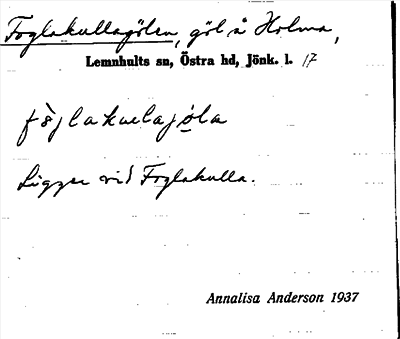 Foglakullagölen, göl å Holma,
Lemnhults sn, Östra hd, Jönk. l. 17
fò̀glakuelajo̲la
Ligger vid Foglakulla.
Annalisa Anderson 1937